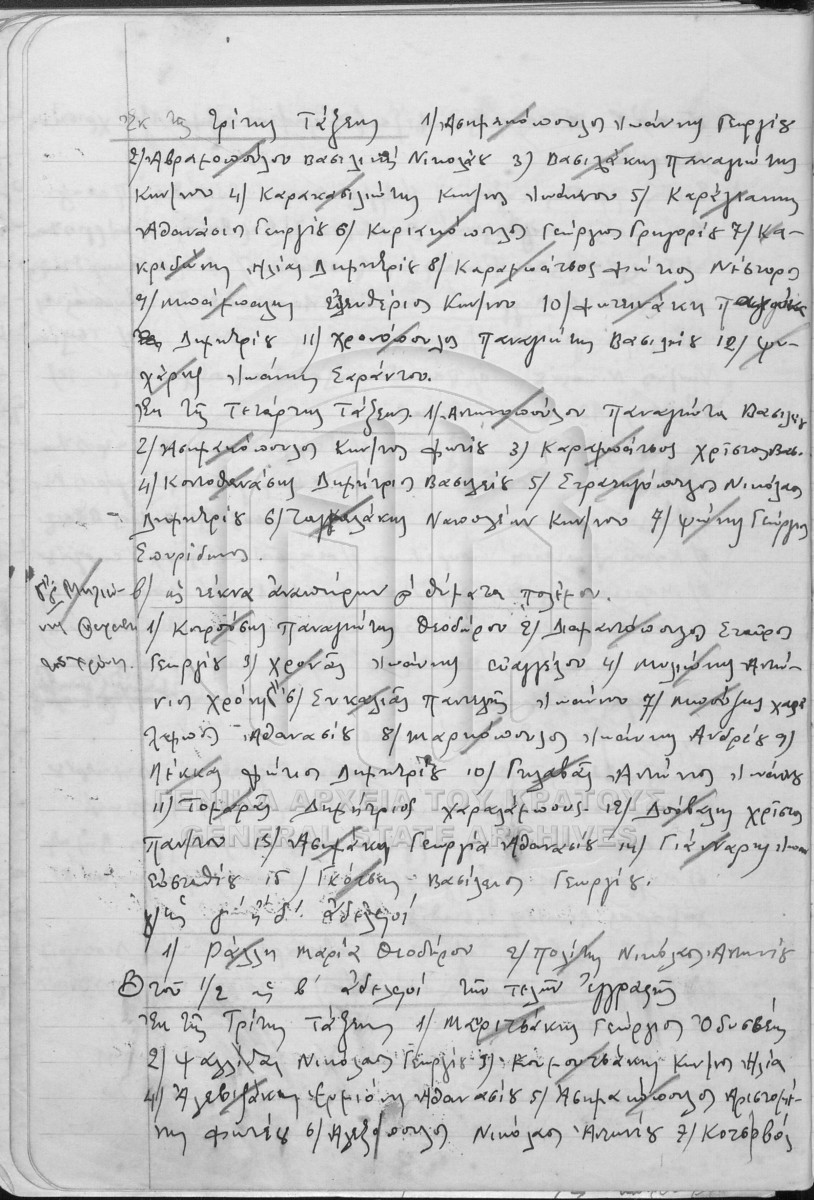 Ἐκ τῆς τρίτης Τάξεως 1/ Ἀσημακόπουλος Ἰωάννης Γεωργίου
2/ Ἀβραμοπούλου Βασιλική Νικολάου 3) Βασιλάκης Παναγιώτης
Κων/νου 4/ Καρακασιλιώτης Κων/νος Ἰωάννου 5/ Καρέγιαννης
Ἀθανάσιος Γεωργίου 6/ Κυριακόπουλος Γεώργιος Γρηγορίου 7/ Κα-
κριδώνης Ἠλίας Δημητρίου 8/ Καραμπάτσος Φώτιος Νέστορος
9/ Μπάμπαλης Ἐλευθέριος Κων/νου 10/ Φωτεινάκη
Δημητρίου 11) Χρονόπουλος Παναγιώτης Βασιλείου 12/ Ψυ-
χάρης Ἰωάννης Σαράντου.
Ἐκ τῆς Τετάρτης Τάξεως. 1/ Ἀντωνοπούλου Παναγιώτα Βασιλείου
2/ Ἀσημακόπουλος Κων/νος Φωτίου 3) Καραμπάτσος Χρῖστος Βασ.
4/ Κοντοθανάσης Δημήτριος Βασιλείου 5/ Στρατηγόπουλος Νικόλαος
Δημητρίου 6/ Ναπολέων Κων/νου 7/ Ψώνης Γεώργιος
Σπυρίδωνος.
β/ ὡς τέκνα ἀναπήρων ἢ θύματα πολέμου.
1/ Κοτρώτσης Παναγιώτης Θεοδώρου 2/ Διαμαντόπουλος Σταῦρος
Γεωργίου 3) Χρονᾶς Ἰωάννης Εὐαγγέλου 4/ Μηλιώνης Ἀντώ-
νιος Χρήστου 6/ Συκαλιᾶς Παντελῆς Ἰωάννου 7/ Μπούζης Χαρά
λαμπος Ἀθανασίου 8/ Μαρκόπουλος Ἰωάννης Ἀνδρέου 9)
Λέκκας Φώτιος Δημητρίου 10/ Γκλαβᾶς Ἀντώνιος Ἰωάννου
11) Τομαρᾶς Δημήτριος Χαραλάμπους. 12/ Δούβαλης Χρῖστος
Παν/του 13/ Ἀσημάκη Γεωργία Ἀθανασίου 14/ Γιάνναρης Ἰωάν
Εὐσταθίου 15/ Γκότσης Βασίλειος Γεωργίου.
γ/ ὡς γ' ἢ δ'. ἀδελφοί
1) Ράλλη Μαρία Θεοδώρου 2/ Πολίτης Νικόλαος Ἀντωνίου
Β τοῦ 1/2 ὡς β' ἀδελφοί τῶν τελῶν ἐγγραφῆς
Ἐκ τῆς Τρίτης Τάξεως 1) Μαριτσάκης Γεώργιος Ὀδυσσέως
2) Ψαλλίδας Νικόλαος Γεωργίου 3) Κουμουτσάκης Κων/νος Ἠλία
4/ Ἀλεβιζάκη Ἑρμιόνη Ἀθανασίου 5/ Ἀσημακόπουλος Ἀριστομέ-
νης Φωτίου 6/ Ἀλεξόπουλος Νικόλαος Ἀντωνίου 7/ Κοτσοβός
ΓΕΝΙΚΑ ΑΡΧΕΙΑ ΤΟΥ ΚΡΑΤΟΥΣ
GENERAL STATE ARCHIVES